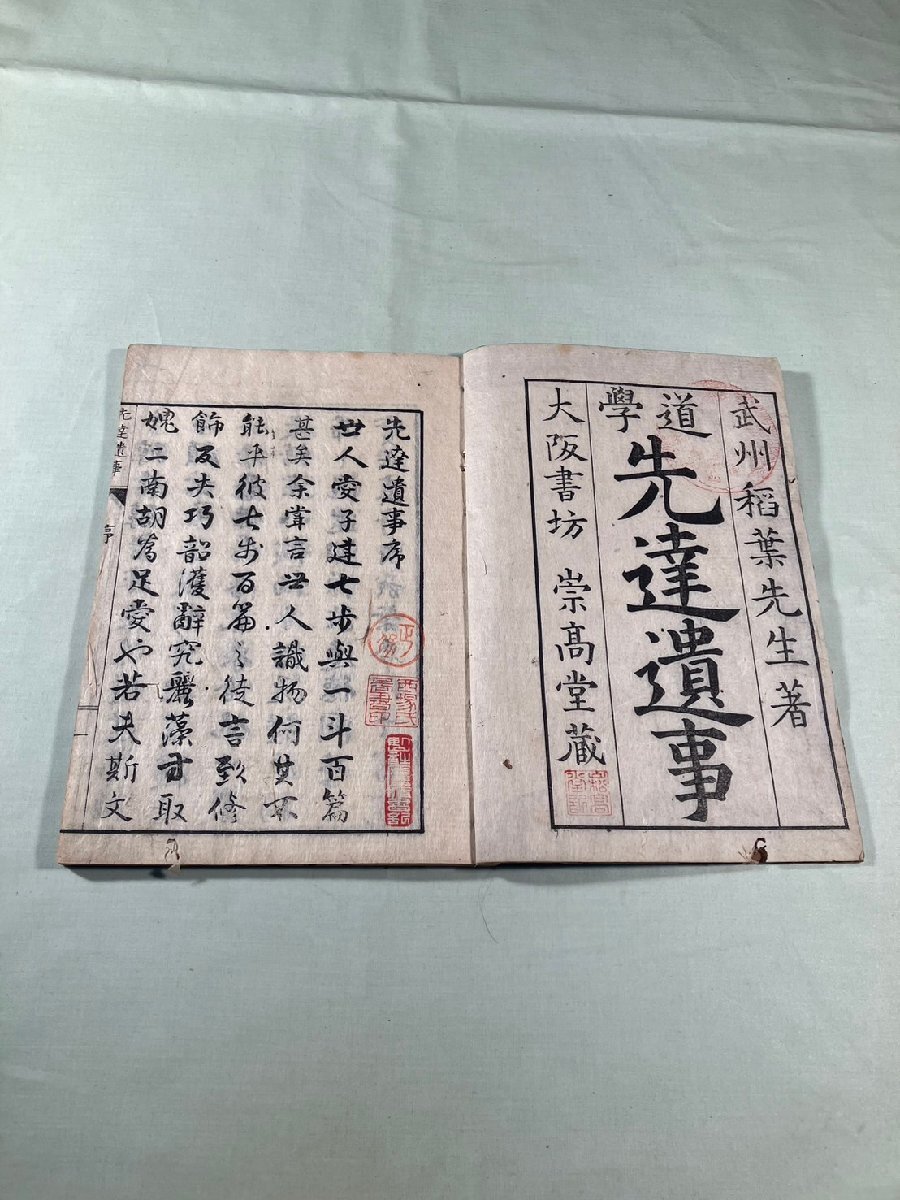 武州稻葉先生著
道學
先達遺事
大阪書坊 崇高堂藏
先達遺事序
世人愛子建七步與一斗百篇
甚矣余嘗言世人識物何其不
能乎彼七步百篇之徒言歟修
飾反失巧韶濩辭究麗藻亦取
媿二南胡為足愛也若夫斯文
先達遺事
序